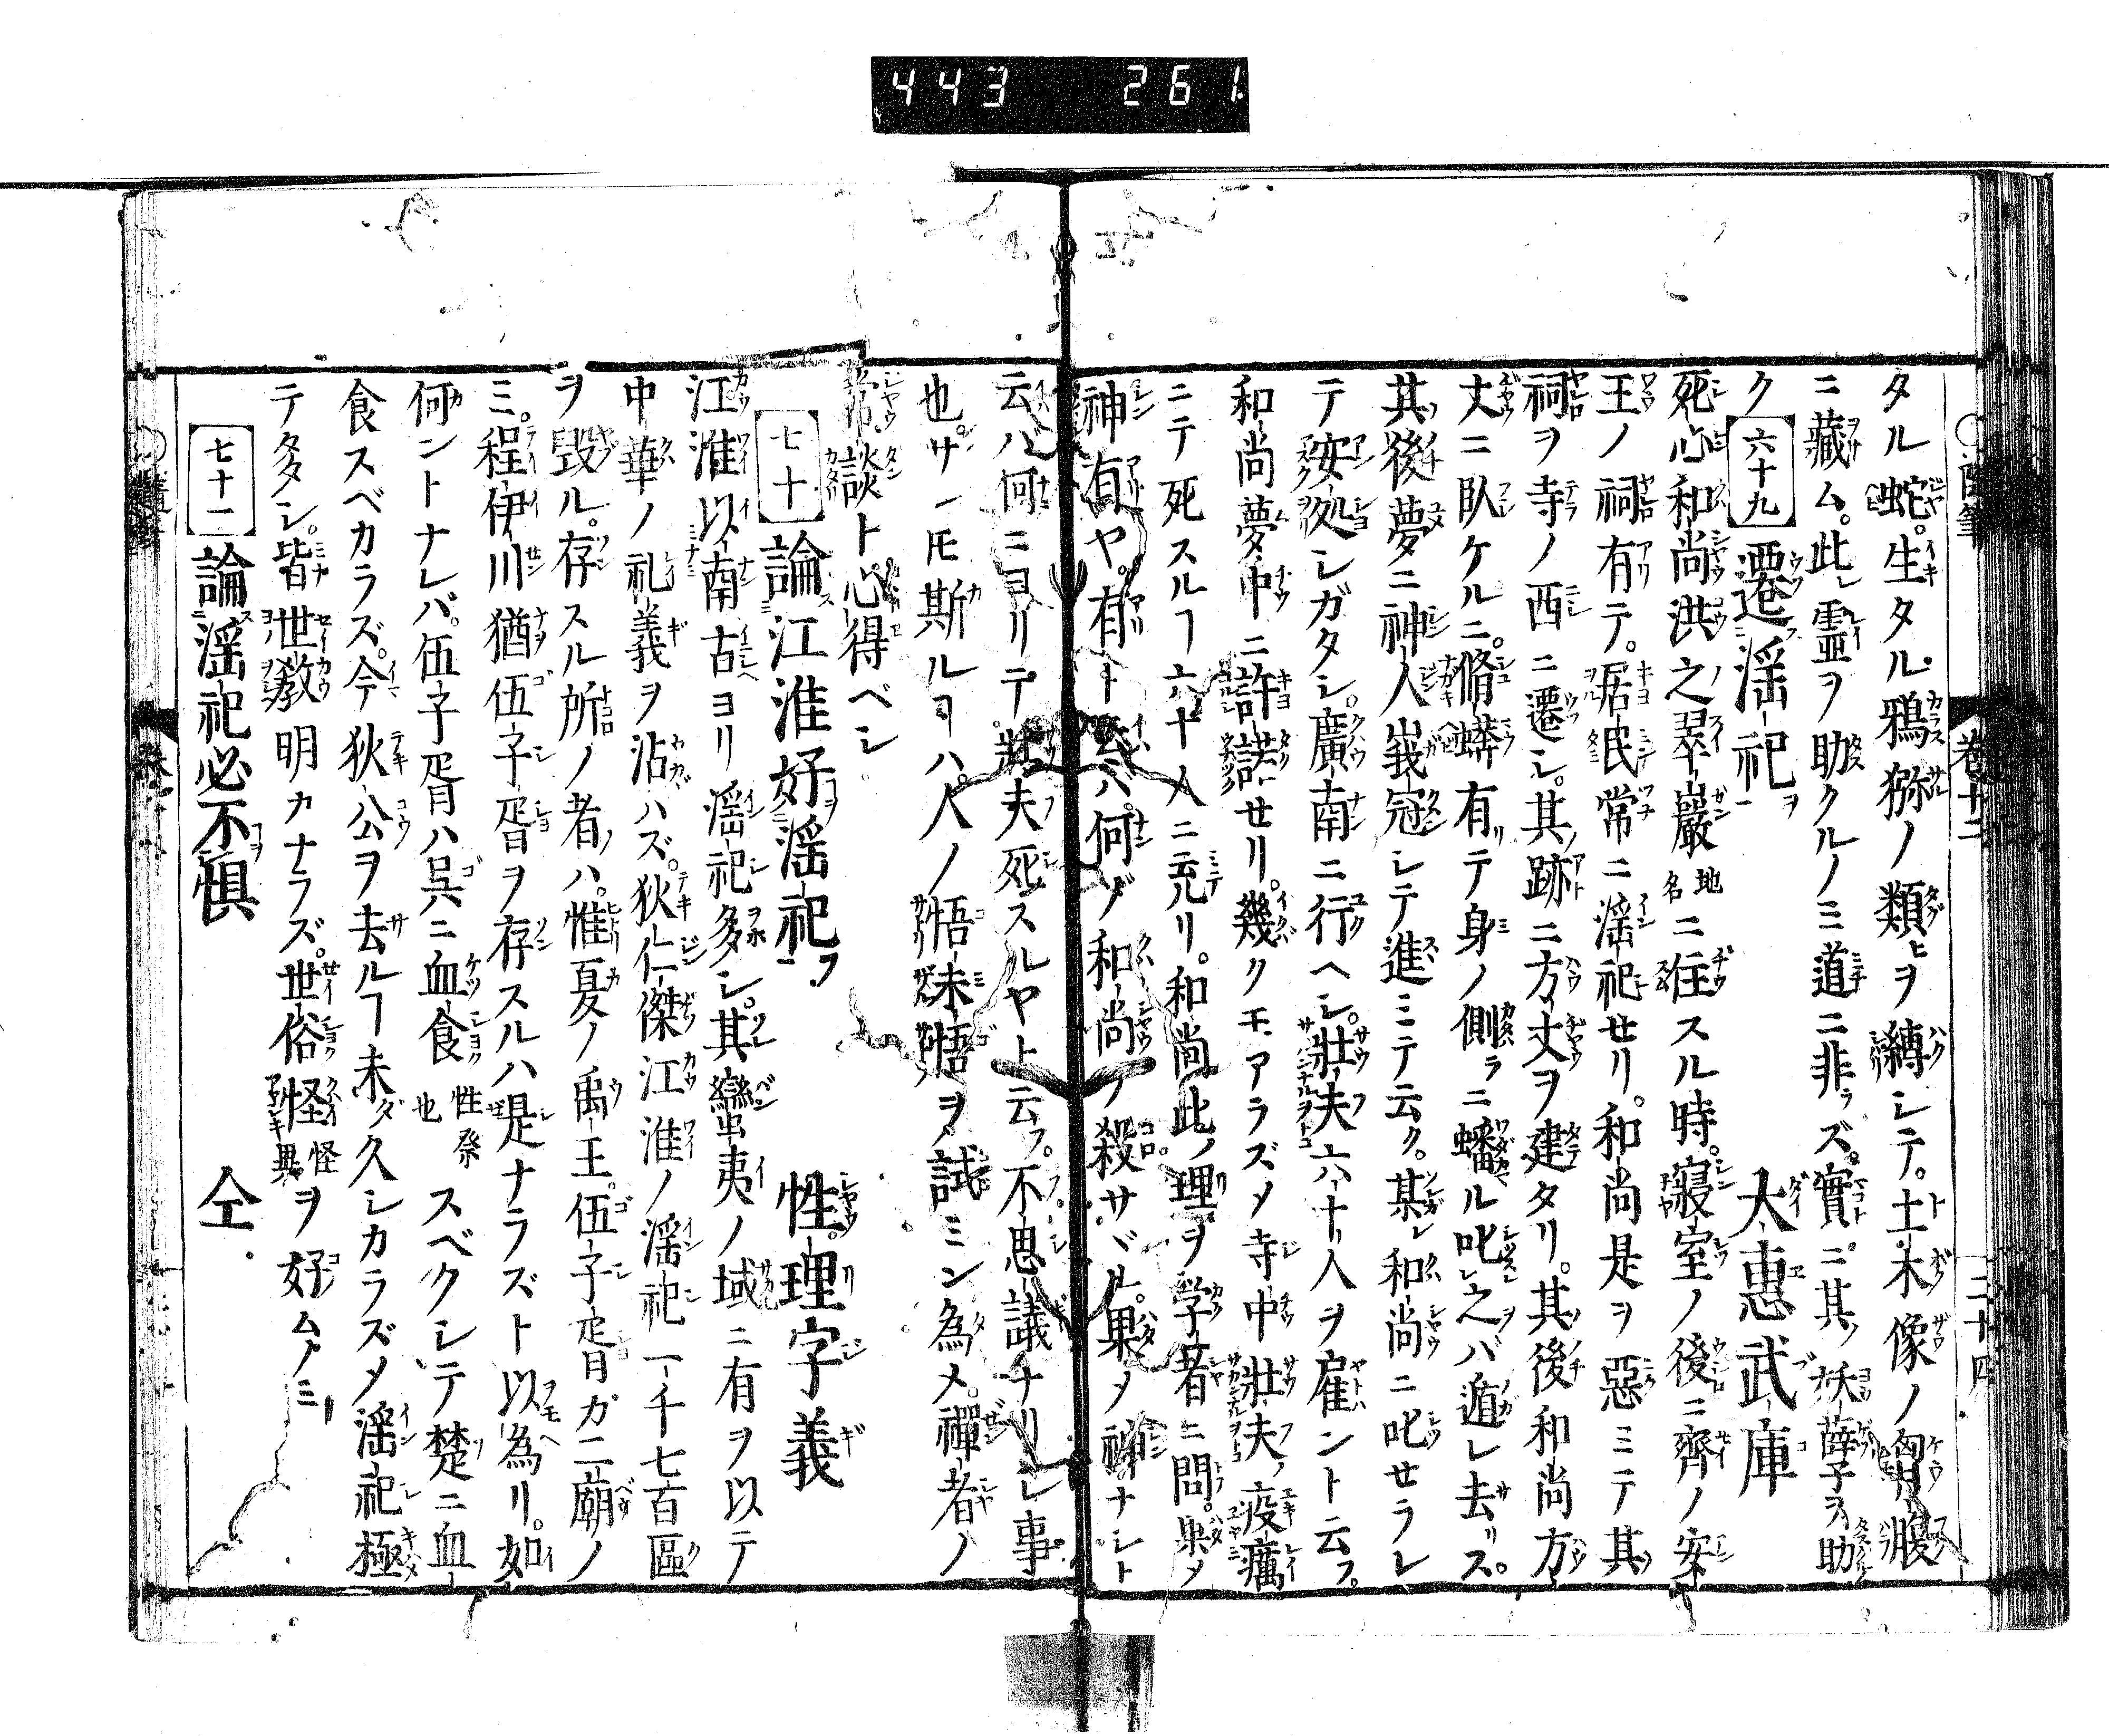 443 261
タル蛇。生タル鴉猕ノ類ヒヲ縛シテ。土木像ノ胷腹
ニ藏ム。此レ霊ヲ助クルノミ道ニ非ラズ。實ニ其ノ妖孽ヲ助
ク
六十九 遷淫祀ヲ 大惠武庫
死心和尚洪之翠巖地名ニ住スル時。寢室ノ後ニ齊ノ安
王ノ祠有テ。居民常ニ淫祀セリ。和尚是ヲ惡ミテ其
祠ヲ寺ノ西ニ遷シ。其跡ニ方丈ヲ建タリ。其後和尚方
丈ニ臥ケルニ。脩蟒有テ身ノ側ラニ蟠ル叱之バ遁レ去リス。
其後夢ニ神人峩冠シテ進ミテ云ク。某レ和尚ニ叱セラレ
テ安処シガタシ。廣南ニ行ヘシ。壯夫六十人ヲ雇ント云フ。
和尚夢中ニ許諾セリ。幾クモアラズメ寺中壯夫ノ疫癘
ニテ死スルヿ六十人ニ充リ。和尚此ノ理ヲ学者ニ問。果メ
神有ヤ。有ト云バ。何ゾ和尚ノ殺サヾル。果メ神ナシト
云ハ何ニヨリテ壯夫死スルヤト云フ。不思議ナリシ事
也。サレモ斯ルヿハ。人ノ悟未悟ヲ試ミン為メ。禪者ノ
常談ト心得ベシ
七十 論江淮好淫祀フ 性理字義
江淮以南古ヨリ淫祀多シ。其蠻夷ノ域ニ有ヲ以テ
中華ノ礼義ヲ沾ハズ。狄仁傑江淮ノ淫祀一千七百區
ヲ毀ル。存スル所ノ者ハ。惟夏ノ禹王。伍子胥ガ二廟ノ
ミ。程伊川猶伍子胥ヲ存スルハ是ナラズト以為リ。如
何ントナレバ。伍子胥ハ呉ニ血食牲祭也スベクシテ楚ニ血
食スベカラズ。今狄公ヲ去ルヿ未ダ久シカラズメ淫祀極
テ多シ。皆世教明カナラズ。世俗怪怪異ヲ好ムノミ
七十一 論淫祀必不惧 仝